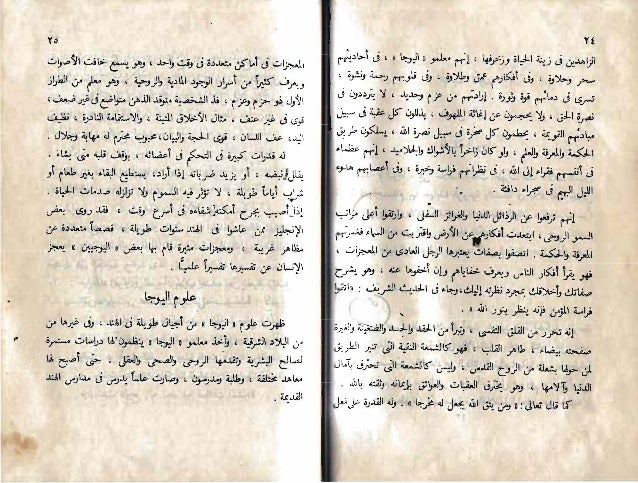 ٢٤
الزاهدين في زينة الحياة وزخرفها ، إنهم معلمو « اليوجا » ، في أحاديثهم
سحر وحلاوة ، وفي أفكارهم عمق وطلاوة ، وفي قلوبهم رحمة ونشوة ،
تسري في دمائهم قوة وثورة . إرادتهم من عزم وحديد ، لا يترددون في
نصرة الحق ، ولا يحجمون عن إغاثة الملهوف . يذللون كل عقبة في سبيل
مبادئهم القويمة ، يحطمون كل صخرة في سبيل نصرة الله ، يسلكون طريق
الحكمة والمعرفة والعلم ، ولو كان زاخراً بالأشواك والجلاميد ، إنهم عظماء
في أنفسهم فقراء إلى الله ، في نظراتهم فراسة وخبرة ، وفي أعصابهم هدوء
الليل البهيم في صحراء دافئة .
إنهم ترفعوا عن الرذائل الدنيا والغرائز السفلى ، وارتقوا أعلى مراتب
السمو الروحي ، ابتعدت أفكارهم عن الأرض واقتربت من السماء
المعرفة والحكمة . اتصفوا بصفات يعتبرها الرجل العادي من المعجزات ،
فهو يقرأ أفكار الناس ويعرف خفاياهم وإن أخفوها عنه ، وهو يشرح
صفاتك وأخلاقك بمجرد نظرته إليك، وجاء في الحديث الشريف : « اتقوا
فراسة المؤمن فإنه ينظر بنور الله » .
إنه تحرر من القلق النفسي ، وتبرأ من الحقد والحسد والضغينة والغيرة
صفحته بيضاء ، طاهر القلب ، فهو كالشمعة النقية التي تنير الطريق
لمن حولها بشعلة من الروح القدس ، وليس كالشمعة التي تحترق بآمال
الدنيا وآلامها ، وهو يخترق العقبات والعوائق بإيمانه وثقته بالله .
كما قال تعالى : « ومن يتق الله يجعل له مخرجا » . وله القدرة على فعل
٢٥
المعجزات في أماكن متعددة في وقت واحد ، وهو يسمع خافت الأصوات
ويعرف كثيراً من أسرار الوجود المادية والروحية ، وهو معلم من الطراز
الأول ذو حزم وعزم ، فذ الشخصية متوقد الذهن متواضع في غير ضعف ،
قوي في غير عنف . مثال الأخلاق النبيلة ، والاستقامة النادرة ، نظيف
اليد ، عف اللسان ، قوي الحجة والبيان، محبوب محترم له مهابة وجلال .
له قدرات كبيرة في التحكم في أعصابه ، يوقف قلبه متى يشاء .
يقلل نبضه ، أو يزيد ضرباته إذا أراد، يستطيع البقاء بغير طعام أو
شراب أياماً طويلة ، لا تؤثر فيه السموم ولا تزلزله صدمات الحياة .
إذا أصيب بجرح أمكنه شفاءه في أسرع وقت ، فقد روى بعض
الإنجليز ممن عاشوا في الهند سنوات طويلة ، قصصاً متعددة عن
مظاهر غريبة ، ومعجزات مثيرة قام بها بعض « اليوجيين » يعجز
الإنسان عن تفسيرها تفسيراً علمياً .
علوم اليوجا
ظهرت علوم « اليوجا » من أجيال طويلة في الهند ، وفي غيرها من
من البلاد الشرقية ، وأخذ معلمو « اليوجا » ينظمون لها دراسات مستمرة
لصالح البشرية وتقدمها الروحي والصحي والعقلي . حتى أصبح لها
معاهد مختلفة ، وطلبة ومدرسون ، وصارت علماً يدرس في مدارس الهند
القديمة .